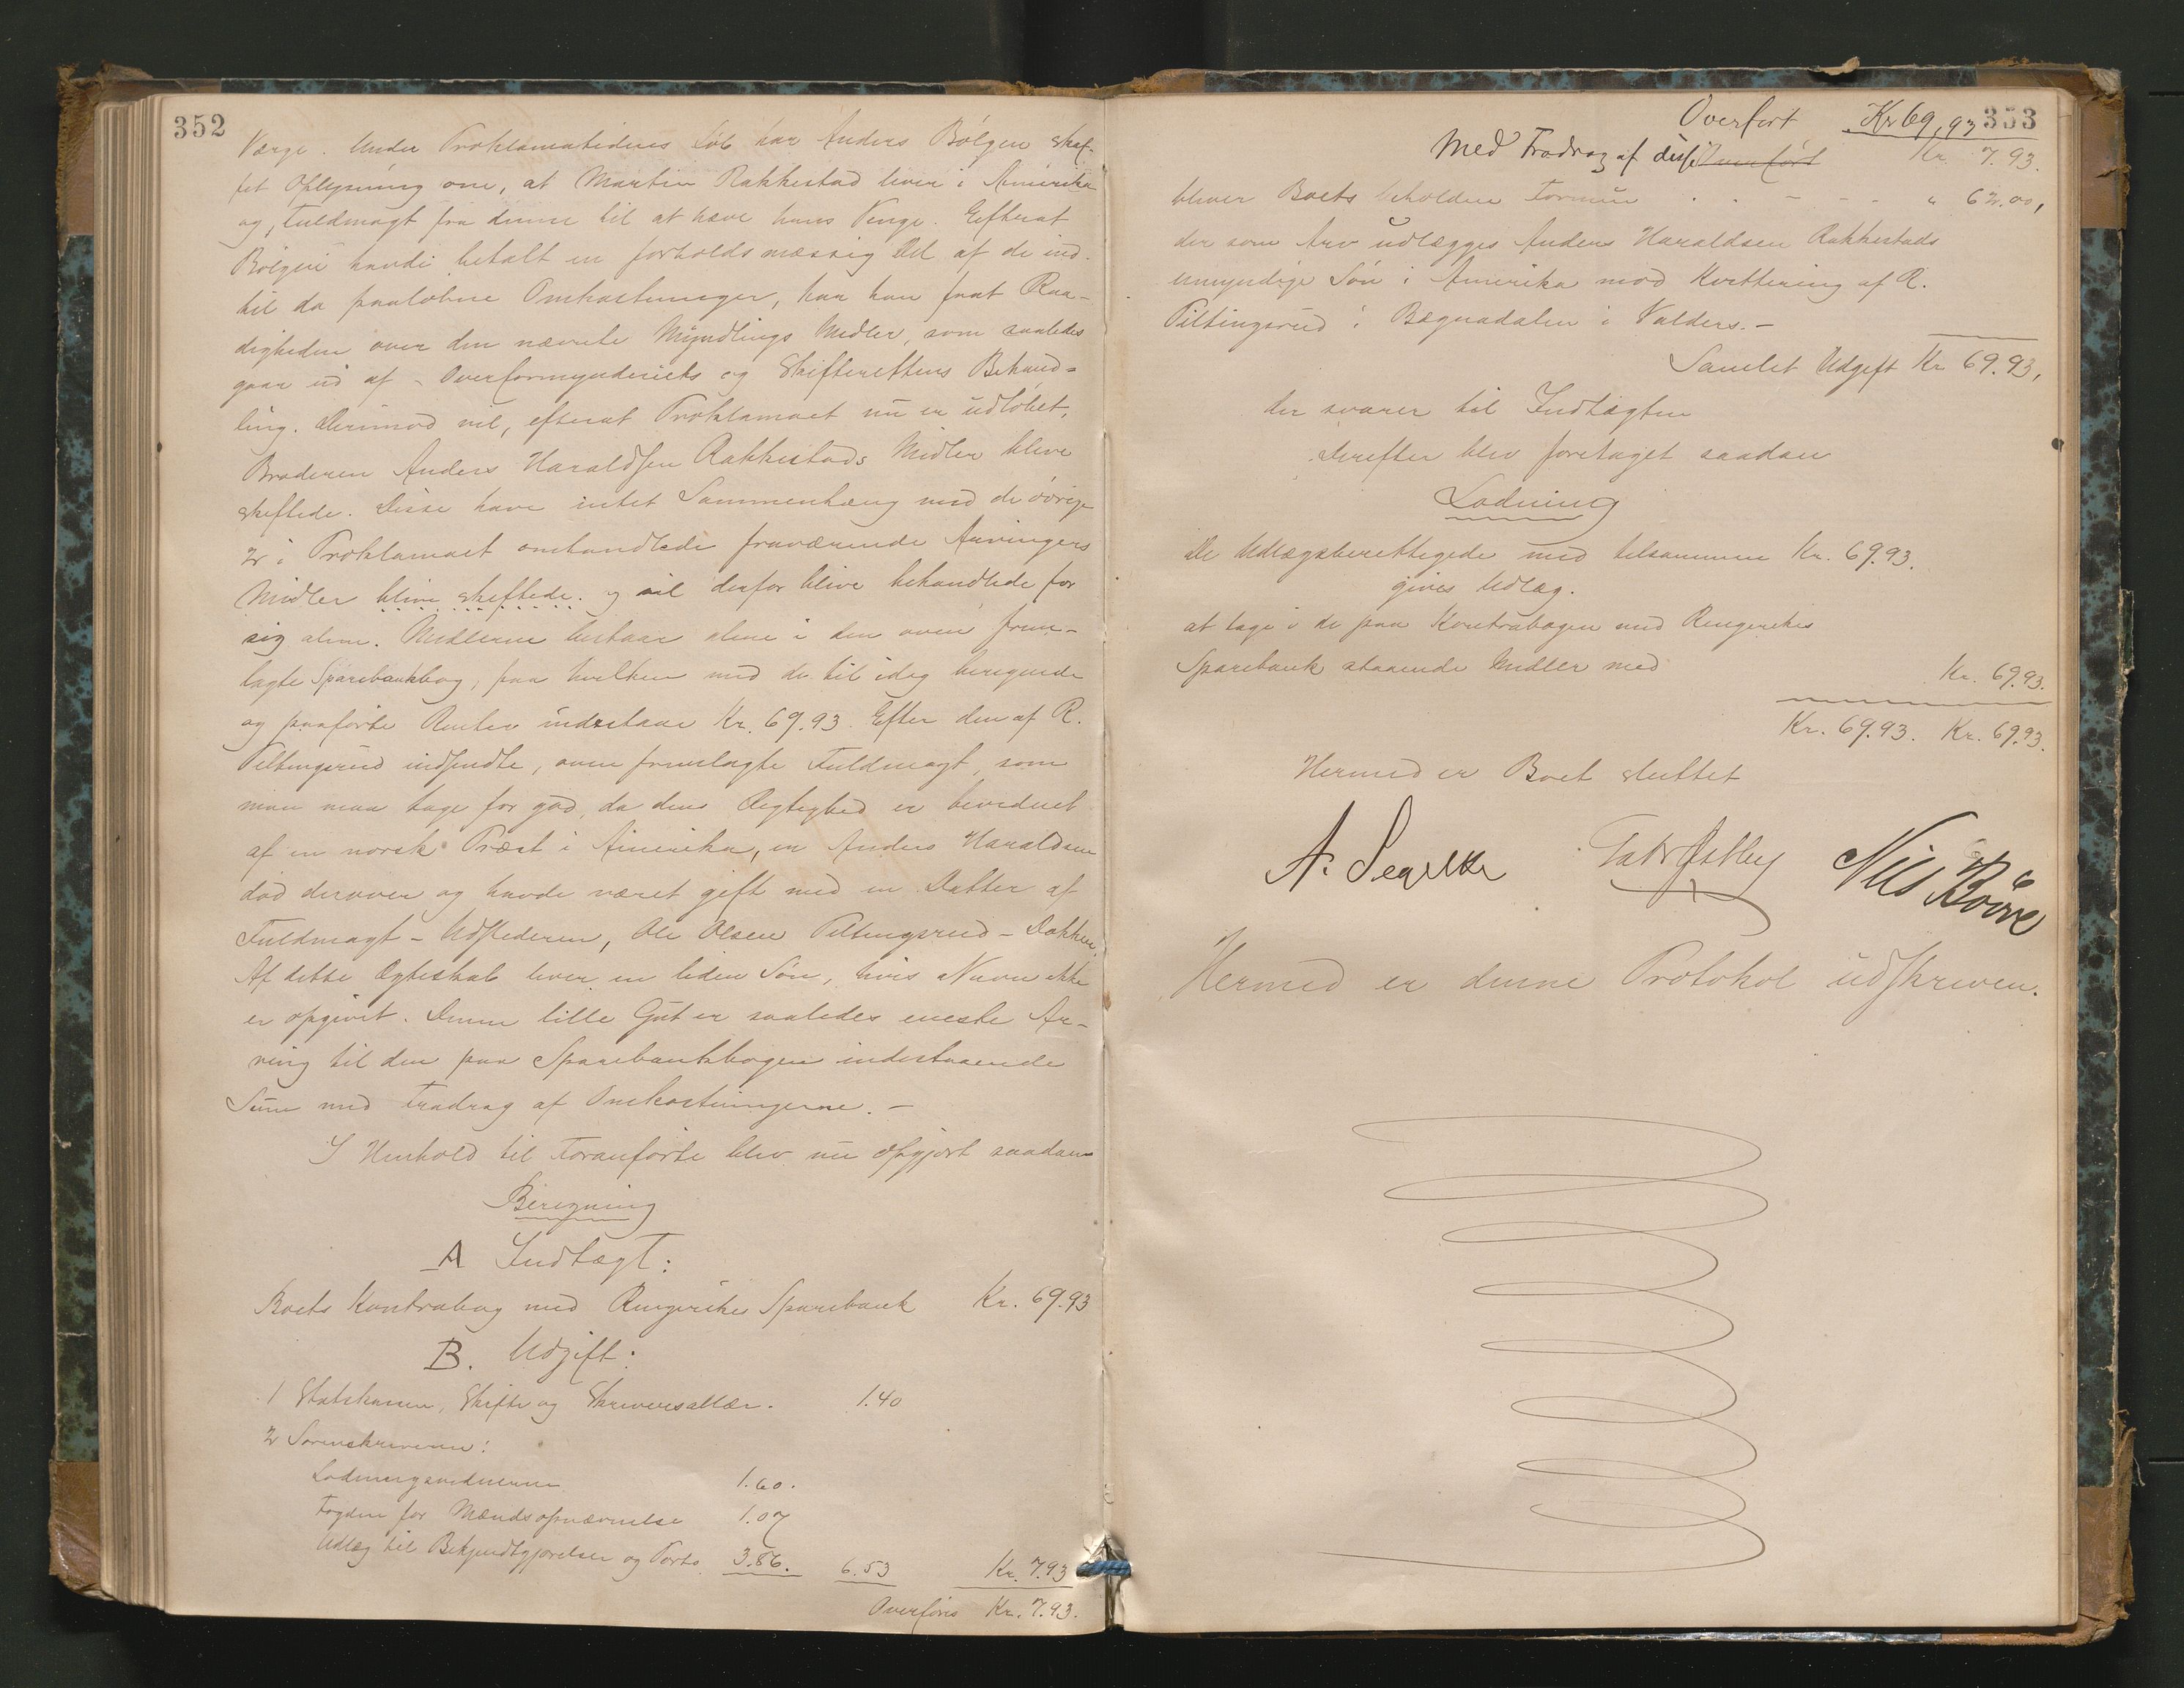 352
Værge. Under Proklamatidens Løb har Anders Bølgen skaf-
fet Oplysning om, at Martin Rakkestad lever i Amerika
og, Fuldmagt fra denne til at hæve hans Penge. Efterat
Bølgen havde betalt en forholdsmæssig Del af de ind-
til da paaløbne Omkostninger, har han faat Raa-
digheden over den nævnte Myndlings Midler, som saaledes
gaar ud af Overformynderiets og Skifterettens Behand-
ling. Derimod vil, efterat Proklamaet nu er udløbet,
Broderen Anders Haraldsen Rakkestads Midler blive
skiftede. Disse have intet Sammenhæng med de øvrige
2 i Proklamaet omhandlede fraværende Arvingers
Midler blive skiftede. og vil derfor blive behandlede for
sig alene. Midlerne bestaar alene i den oven frem-
lagte Sparebankbog, paa hvilken med de til idag beregnede
og paaførte Renter indestaar Kr. 69.93. Efter den af R.
Piltingsrud indsendte, oven fremlagte Fuldmagt, som
man maa tage for god, da dens Ægtighed er bevidnet
af en norsk Præst i Amerika, er Anders Haraldsen
død derover og havde været gift med en Datter af
Fuldmagt-Udstederen, Ole Olsen Piltingsrud-Dokken.
Af dette Ægteskab lever en liden Søn, hvis Navn ikke
er opgivet. Denne lille Gut er saaledes eneste Ar-
ving til den paa Sparebankbogen indestaaende
Sum med Fradrag af Omkostningerne. -
I Henhold til Foranførte blev nu opgjort saadan
Beregning
A Indtægt:
Boets Kontrabog med Ringerikes Sparebank Kr. 69.93
B. Udgift:
1 Statskassen, Skifte og Skriversallær. 1.40
2 Sorenskriveren:
Lodningsvidnerne 1.60.
Fogden for Mændsopnævnelse 1.07
Udlæg til Bekjendtgjørelser og Porto 3.86. 6.53 Kr. 7.93
Overføres Kr. 7.93.
353
Overført Kr 69,93
Med Fradrag af disse Overført Kr 7.93.
bliver Boets beholdne Formue . . - - - " 62.00,
der som Arv udlægges Anders Haraldsen Rakkestads
umyndige Søn i Amerika mod Kvittering af R.
Piltingsrud i Bægnadalen i Valders. -
Samlet Udgift Kr 69.93,
der svarer til Indtægten
Derefter blev foretaget saadan
Lodning
De Udlægsberettigede med tilsammen Kr. 69.93.
gives Udlæg.
at tage i de paa Kontrabogen med Ringerikes
Sparebank staaende Midler med
Kr. 69.93.
Kr. 69.93. Kr. 69.93.
Hermed er Boet sluttet
A. Segelcke Østby Nils
Hermed er denne Protokol udskreven.